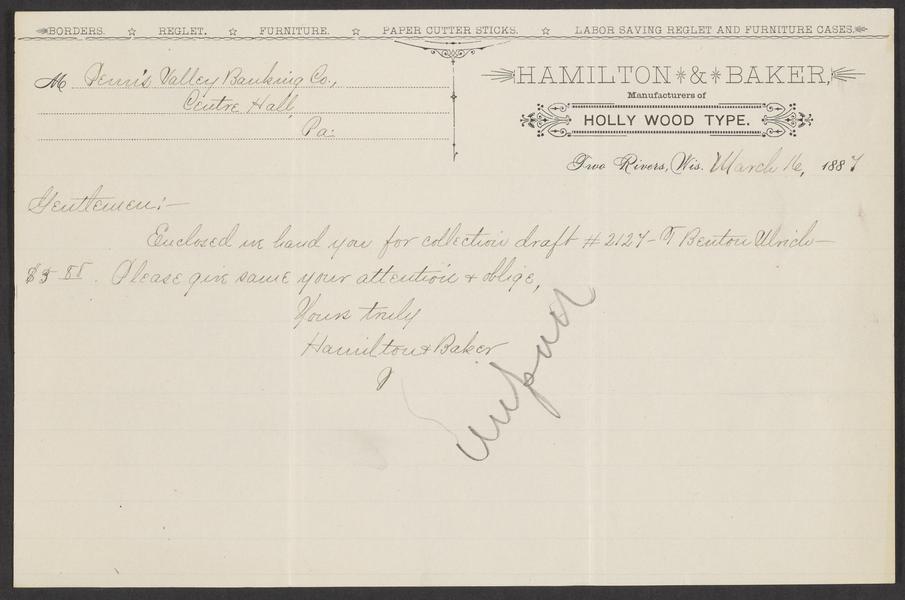 BORDERS. ☆ REGLET. ☆ FURNITURE. ☆ PAPER CUTTER STICKS. ☆ LABOR SAVING REGLET AND FURNITURE CASES.
HAMILTON & BAKER,
Manufacturers of
HOLLY WOOD TYPE.
M Penn's Valley Banking Co.,
Centre Hall,
Pa.
Two Rivers, Wis. March 16, 1887
Gentlemen:—
Enclosed we hand you for collection draft # 2127 – Benton Ulrich –
$3 85. Please give same your attention & oblige,
Yours truly
Hamilton & Baker
Unpaid